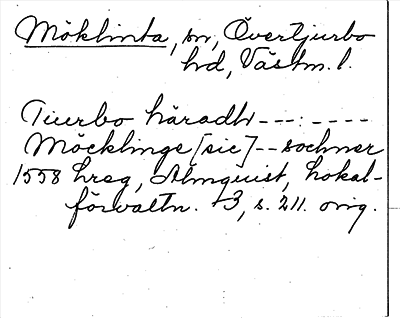 Möklinta, sn, Övertjurbo
hd, Västm. l.
Tiurbo häradh ---:----
Möcklinge [sic] -- sochner
1558 hreg, Almquist, Lokal-
förvaltn. 3, s. 211. orig.